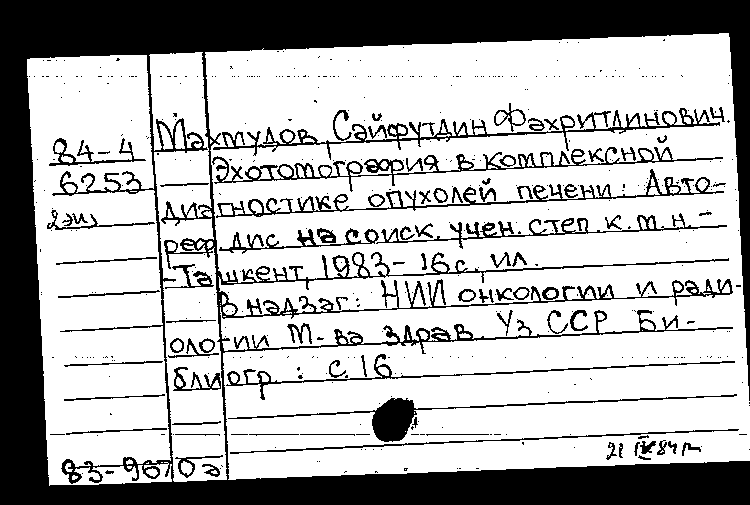 84-4
6253
2 экз
Махтудов, Сайфутдин Фахритдинович.
Эхотомография в комплексной
диагностике опухолей печени: Авто-
реф. дис на соиск. учен. степ. к. м. н. -
- Ташкент, 1983 - 16 с., ил.
В надзаг: НИИ онкологии и ради-
ологии М-ва здрав. Уз ССР Би-
блиогр. : с. 16
83-9670а
21 IV 84 г.